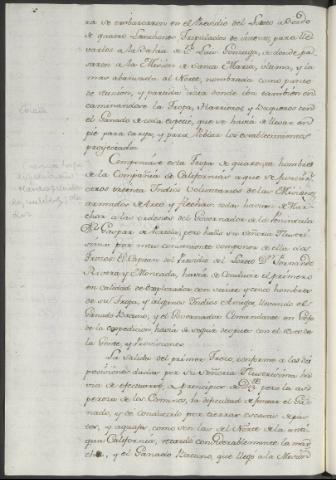 ra se embarcaron en el Presidio del Loreto a bordo
de quatro Lanchones tripulados de intento, para lle
varlos a la Bahia de Sn. Luis Gonzaga, de donde pa
saron a la Mision de Santa Maria, ultima, y la
mas abanzada al Norte, nombrada como punto
de reunion, y partida; alli donde iban tambien en
caminandose la Tropa, Harrieros y Baqueros con
el Ganado de cada especie, que se havia de llevar en
pie para carga, y para poblar los establecimientos
proyectados.
Componiase esta Tropa de quarenta hombres
de la Compañia de Californias a que se
otros treinta Indios Voluntarios de las Misiones,
armados de Arco y flechas: todos havian de Mar
char a las ordenes del Governador de la Peninsula
Dn. Gaspar de Portola; pero hallo su Señoria Ilustri
sima por mas conveniente componer de ella dos
Trozos: El Capitan del Presidio del Loreto Dn. Fernando
Rivera y Moncada, havia de conducir el primero
en calidad de Explorador con veinte y cinco hombres
de su Tropa, y algunos Indios Amigos, llevando el
Ganado Bacuno; y el Governador Comandante en Gefe
de la expedicion, havia de seguir despues con el resto de la
Gente, y Provisiones.
La salida del primer Trozo, conforme a las dis
posiciones dadas por su Señoria Ilustrisima ha
via de efectuarse, a principios de Dre. pero la as
pereza de los Caminos, la dificultad de juntar el Ga
nado, y de conducirlo por tierras escasas de pas
tos, y aguas, como son las del Norte de la anti
gua California, retardó considerablemente la mar
cha, y el Ganado Bacuno, que llegó a la Mision